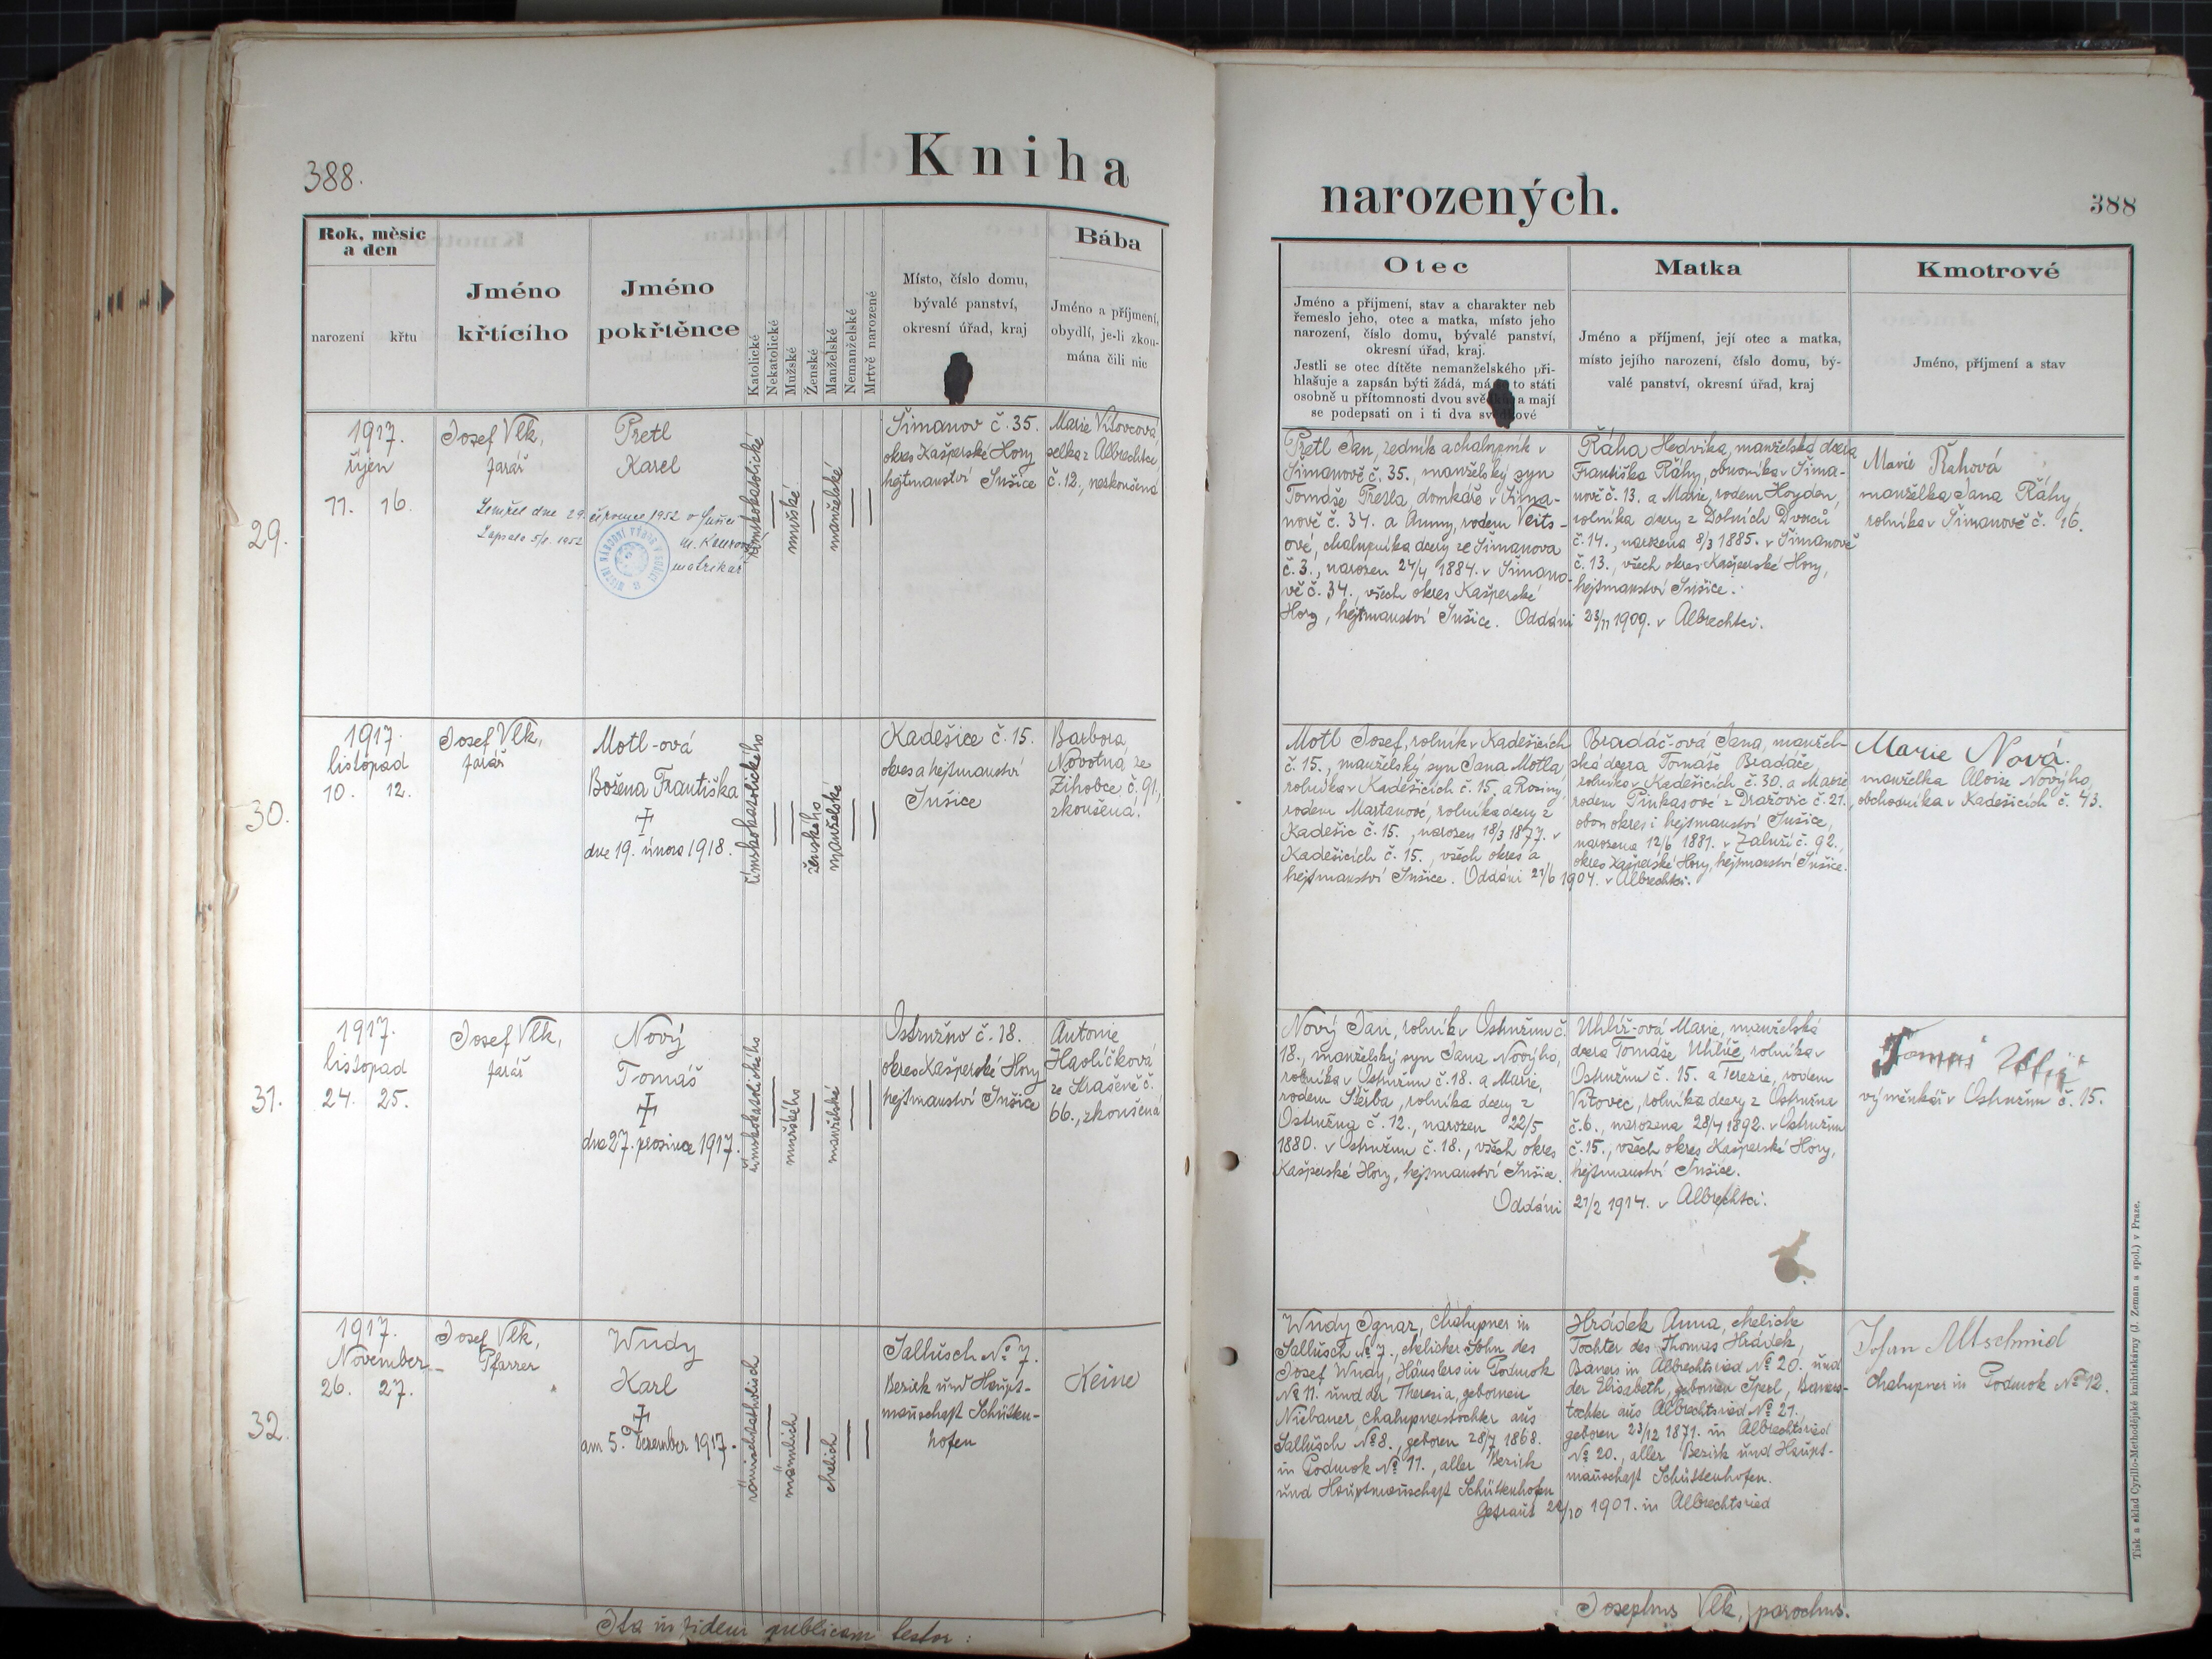 388.
Kniha
Rok, měsíc
a den
narození
křtu
Jméno
křtícího
Jméno
pokřtěnce
Katolické
Nekatolické
Mužské
Ženské
Manželské
Nemanželské
Mrtvě narozené
Místo, číslo domu,
bývalé panství,
okresní úřad, kraj
Bába
Jméno a příjmení,
obydlí, je-li zkou-
mána čili nic
29.
1917.
říjen
11. 16.
Josef Vlk,
farář
Pretl
Karel
Zemřel dne 29. července 1952 v Sušici
Zapsáno 5/8. 1952
matrikář
římskokatolické
mužské
manželské
Šimanov č. 35.
okres Kašperské Hory
hejtmanství Sušice
Marie Vítovcová
selka z Albrechtce
č. 12., neskoušená
30.
1917.
listopad
10. 12.
Josef Vlk,
farář
Motl-ová
Božena Františka
†
dne 19. února 1918.
římskokatolického
ženského
manželské
Kadešice č. 15.
okres a hejtmanství
Sušice
Barbora
Novotná ze
Žihobce č. 91.,
zkoušená.
31.
1917.
listopad
24. 25.
Josef Vlk,
farář
Nový
Tomáš
†
dne 27. prosince 1917.
římskokatolického
mužského
manželské
Ostružno č. 18.
okres Kašperské Hory
hejtmanství Sušice
Antonie
Havlíčková
ze Strašeně č.
66., zkoušená
32.
1917.
November
26. 27.
Josef Vlk,
Pfarrer
Wudy
Karl
†
am 5. Dezember 1917.
römischkatholisch
männlich
ehelich
Jallüsch No 7.
Bezirk und Haupt-
mannschaft Schütten-
hofen
Keine
Ita in fidem publicam testor:
narozených.
388
Otec
Jméno a příjmení, stav a charakter neb
řemeslo jeho, otec a matka, místo jeho
narození, číslo domu, bývalé panství,
okresní úřad, kraj.
Jestli se otec dítěte nemanželského při-
hlašuje a zapsán býti žádá, má to státi
osobně u přítomnosti dvou svědků a mají
se podepsati on i ti dva svědkové
Matka
Jméno a příjmení, její otec a matka,
místo jejího narození, číslo domu, bý-
valé panství, okresní úřad, kraj
Kmotrové
Jméno, příjmení a stav
Pretl Jan, zedník a chalupník v
Šimanově č. 35., manželský syn
Tomáše Pretla, domkáře v Šima-
nově č. 34. a Anny, rodem Veits-
ové, chalupníka dcery ze Šimanova
č. 3., narozen 24/4 1884. v Šimano-
vě č. 34., všech okres Kašperské
Hory, hejtmanství Sušice. Oddáni 23/11 1909. v Albrechtci.
Řáha Hedvika, manželská dcera
Františka Řáhy, obuvníka v Šima-
nově č. 13. a Marie, rodem Hoydar,
rolníka dcery z Dolních Dvorců
č. 14., narozena 8/3 1885. v Šimanově
č. 13., všech okres Kašperské Hory,
hejtmanství Sušice.
Marie Řahová
manželka Jana Řáhy,
rolníka v Šimanově č. 16.
Motl Josef, rolník v Kadešicích
č. 15., manželský syn Jana Motla,
rolníka v Kadešicích č. 15. a Rosiny,
rodem Martanové, rolníka dcery z
Kadešic č. 15., narozen 18/3 1877. v
Kadešicích č. 15., všech okres a
hejtmanství Sušice. Oddáni 21/6 1904. v Albrechtci.
Bradáč-ová Jana, manžel-
ská dcera Tomáše Bradáče,
rolníka v Kadešicích č. 30. a Marie
rodem Pinkasové z Dražovic č. 21.,
obou okres i hejtmanství Sušice,
narozena 12/6 1881. v Zaluží č. 92.,
okres Kašperské Hory, hejtmanství Sušice.
Marie Nová.
manželka Aloise Nového,
obchodníka v Kadešicích č. 43.
Nový Jan, rolník v Ostružnu č.
18., manželský syn Jana Nového,
rolníka v Ostružnu č. 18. a Marie,
rodem Štěrba, rolníka dcery z
Ostružna č. 12., narozen 22/5
1880. v Ostružnu č. 18., všech okres
Kašperské Hory, hejtmanství Sušice.
Oddáni 21/2 1914. v Albrechtci.
Uhlíř-ová Marie, manželská
dcera Tomáše Uhlíře, rolníka v
Ostružnu č. 15. a Terezie, rodem
Vítovec, rolníka dcery z Ostružna
č. 6., narozena 28/4 1892. v Ostružnu
č. 15., všech okres Kašperské Hory,
hejtmanství Sušice.
výměnkář v Ostružnu č. 15.
Wudy Ignaz, Chalupner in
Jallüsch No 7., ehelicher Sohn des
Josef Wudy, Häuslers in Podmok
No 11. und der Theresia, gebornen
Niebauer, Chalupnerstochter aus
Jallüsch No 8., geboren 28/7 1868.
in Podmok No 11., aller Bezirk
und Hauptmannschaft Schüttenhofen
Getraut 22/10 1901. in Albrechtsried
Hrádek Anna, eheliche
Tochter des Thomas Hrádek,
Bauers in Albrechtsried No 20. und
der Elisabeth, gebornen Sperl, Bauers-
tochter aus Albrechtsried No 21.,
geboren 23/12 1871. in Albrechtsried
No 20., aller Bezirk und Haupt-
mannschaft Schüttenhofen.
Johan Altschmid
Chalupner in Podmok No 12.
Josephus Vlk, parochus.
Tisk a sklad Cyrillo-Methodějské knihtiskárny (J. Zeman a spol.) v Praze.